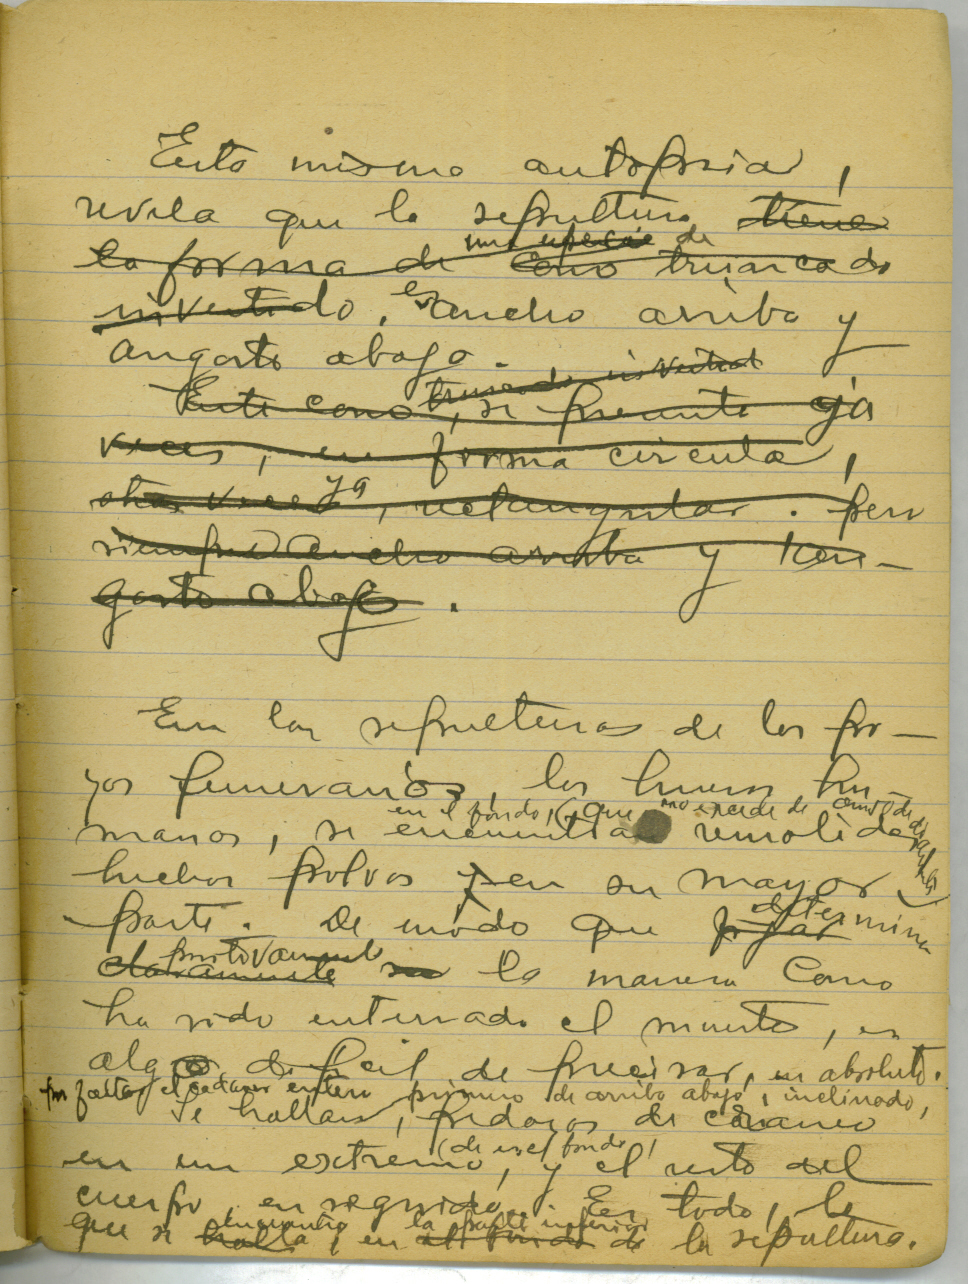 Esta misma autopsia,
revela que la sepultura tiene
una especie de
la forma de cono truncado
invertido, es ancho arriba y
angosto abajo.
truncado invertido
Este cono, se presenta ya
veces, en forma circular,
otras veces ya, rectangular. Pero
siempre ancho arriba y an-
gosto abajo.
En las sepulturas de los po-
yos funerarios, los huesos hu-
en el fondo, (que no excede de
manos, se encuentran remolidos
hechos polvos y en su mayor
parte. De modo que fijar determinar
positivamente
claramente la manera como
ha sido enterrado el muerto, es
algo dificil de precisar, en absoluto.
por faltar el cadaver entero primero de arriba abajo, inclinado,
Se hallan, pedazos de craneo
(de en el fondo)
en un extremo, y el resto del
cuerpo en seguida. Es todo, lo
encuentra la parte inferior
que se halla, en el fondo de la sepultura.